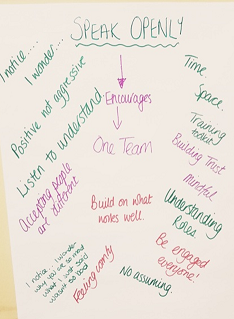 SPEAK OPENLY
I notice....
I wonder...
Positive not aggressive
Listen to understand.
Accepting people
are different
I notice... I wonder
why you are so mad
what I just said
wasn't so bad
Encourages
One Team
Build on what
works well.
Feeling comfy
No assuming.
Time.
Space.
Training
toolkit
Building Trust
Mindful
Understanding
Roles
Be engaged
everyone!